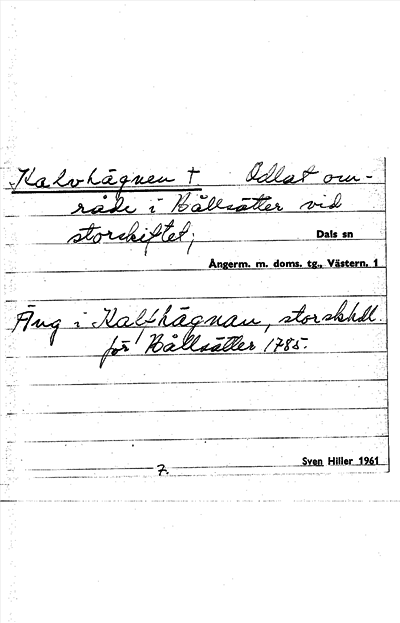 Kalvhägnen † Odlat om-
råde i Hållsätter vid
storskiftet;
Dals sn
Ångerm. m. doms. tg., Västern. 1
Äng i Kalfhägnan, storskhdl.
för Hållsätter 1785.
7.
Sven Hiller 1961